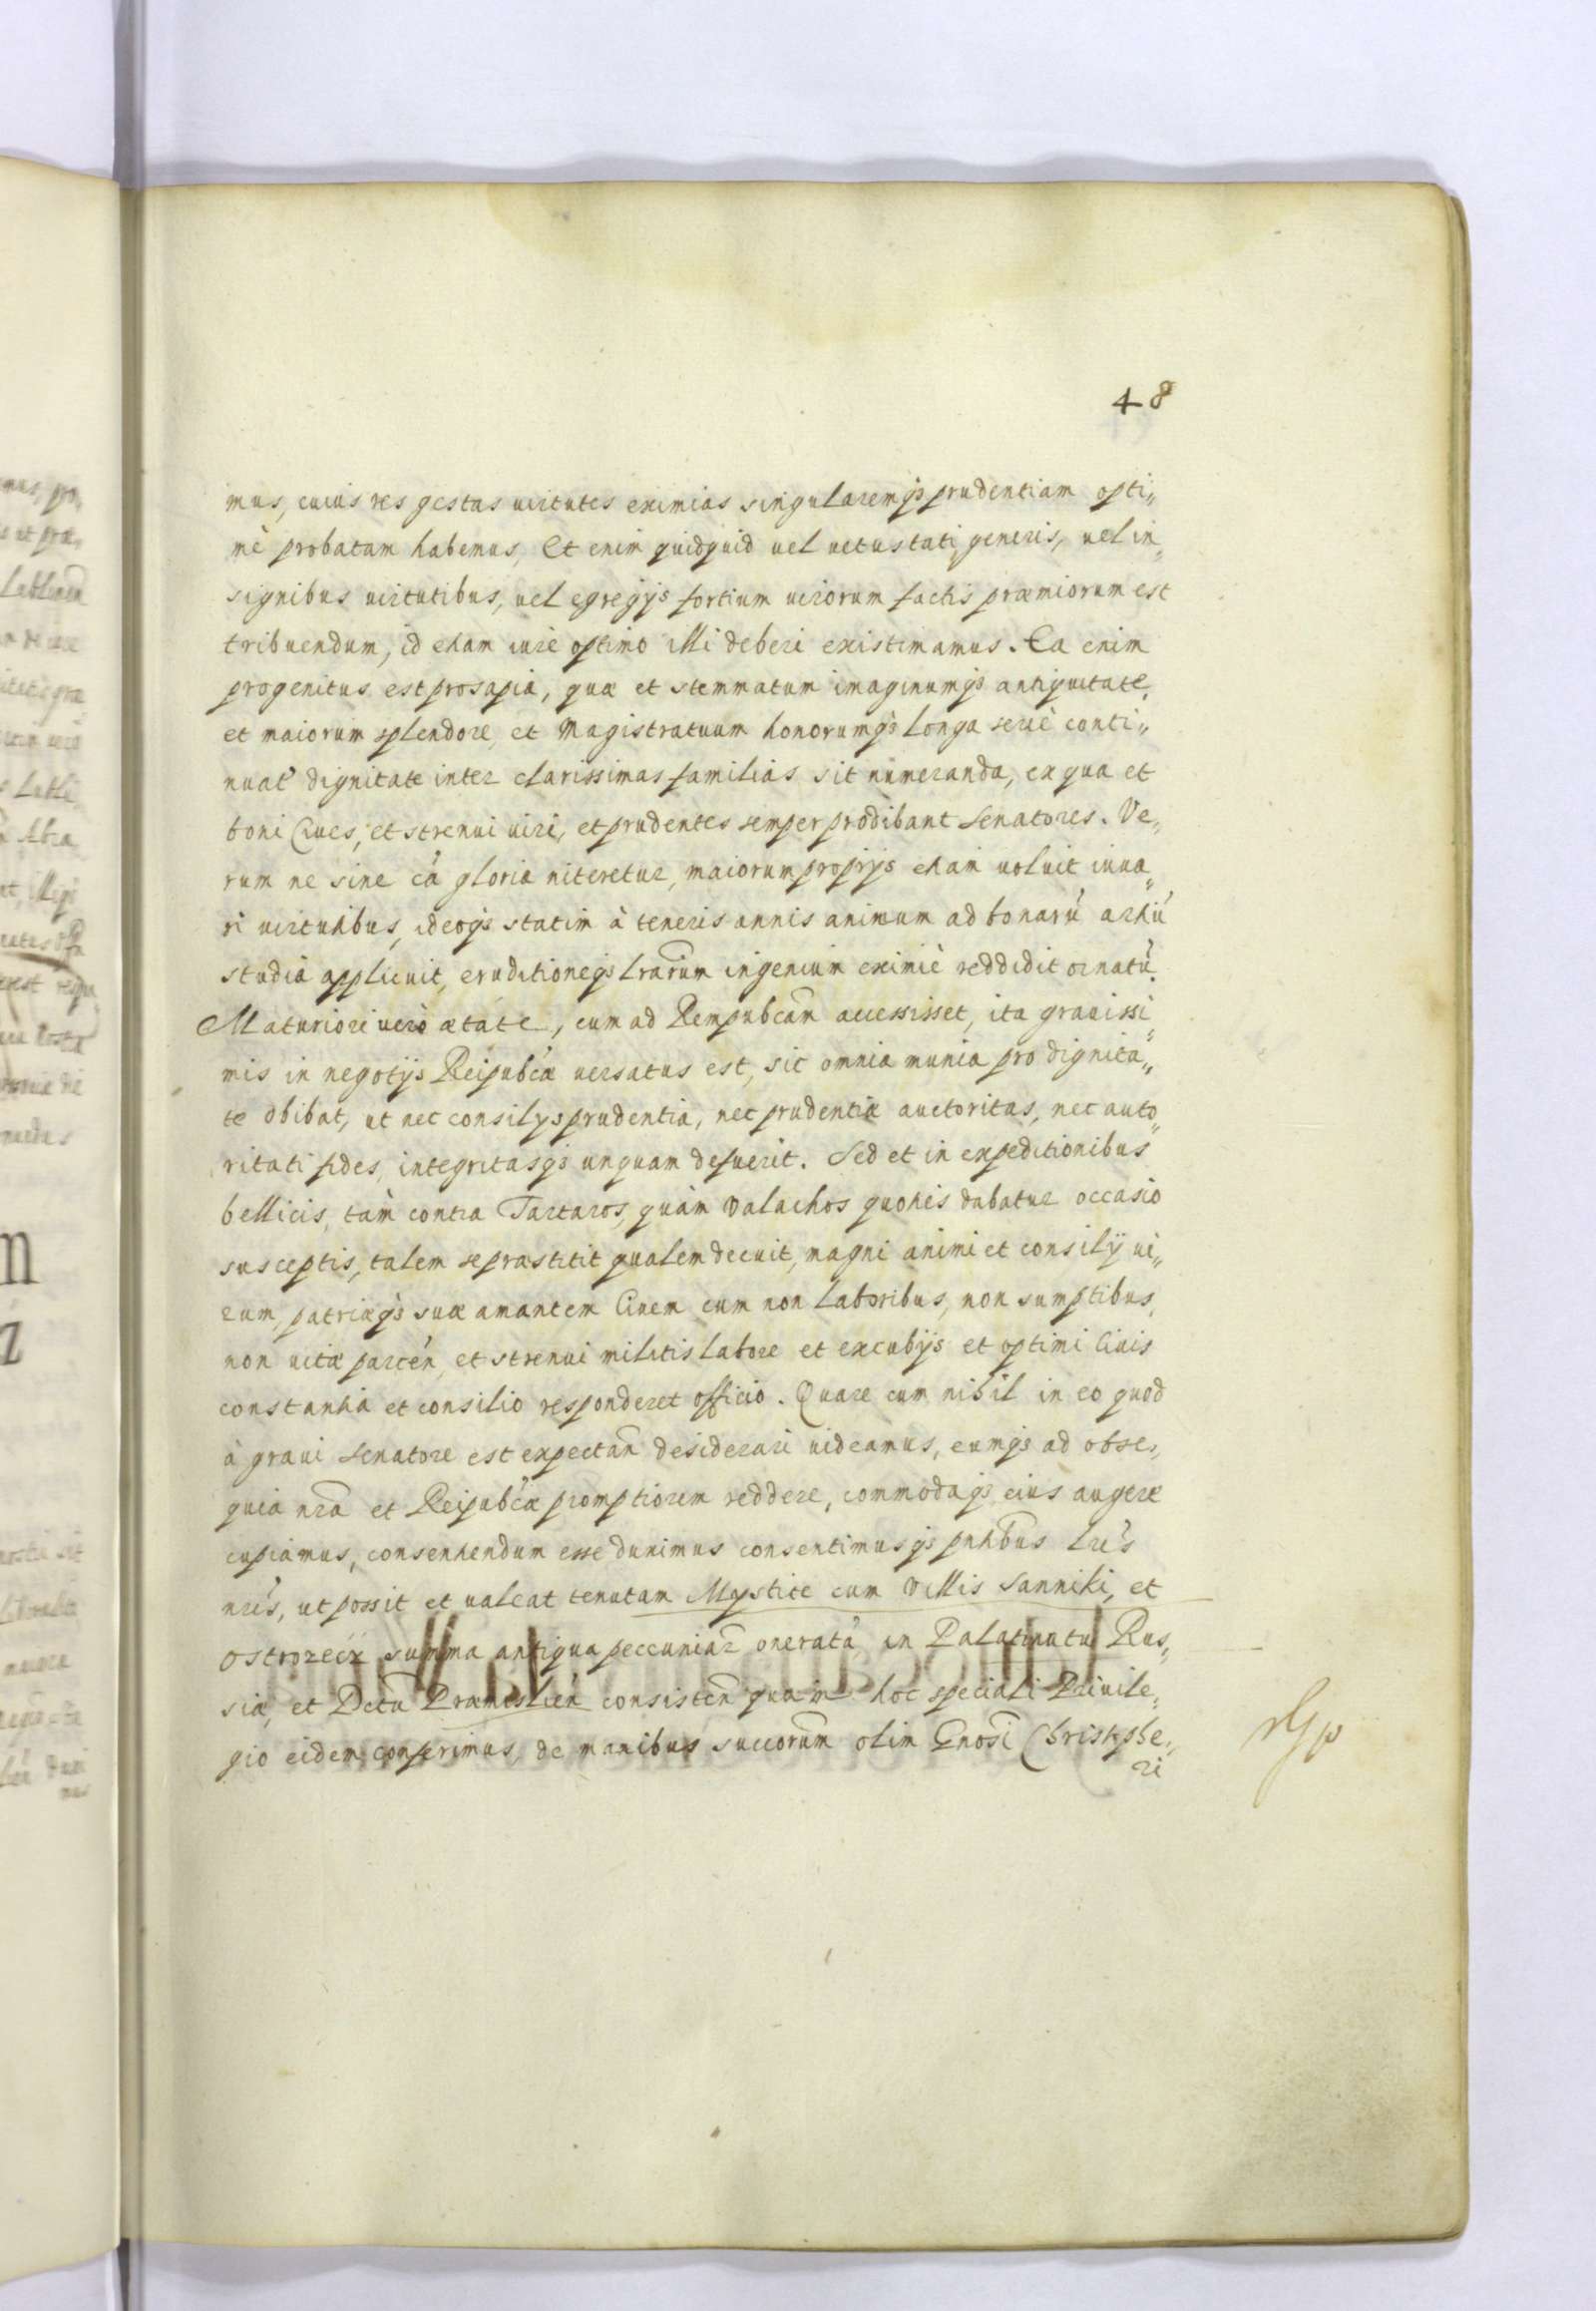 48
imus, cuius res gestas uirtutes eximias singularemqꝫ prudentiam opti„
mè probatam habemus, Et enim quidquid uel uetustati generis, uel in„
signibus uirtutibus, uel egregijs fortium uirorum factis præmiorum est
tribuendum, id etiam iure optimo illi deberi existimamus. Ea enim
progenitus est prosapia, quæ et stemmatum imaginumqꝫ antiquitate,
et maiorum splendore, et Magistratuum honorumqꝫ Longa serie conti„
nuat dignitate inter clarissimas familias sit numeranda, ex qua et
boni Ciues, et strenui uiri, et prudentes semper prodibant Senatores. Ve„
rum ne sine eá gloria niteretur, maiorum proprijs etiam uoluit iuua„
ri uirtutibus, ideoqꝫ statim à teneris annis animum ad bonarũ artiũ
studia applicuit, eruditioneqꝫ Lrarum ingenium eximiè reddidit ornatũ.
Maturiori uero ætate, cum ad Rempubcam accessisset, ita grauissi„
mis in negotijs Reipubcæ uersatus est, sic omnia munia pro dignita„
te obibat, ut nec consilys prudentia, nec prudentiæ auctoritas, nec auto„
ritati fides, integritasqꝫ unquam defuerit. Sed et in expeditionibus
bellicis, tàm contra Tartaros, quàm Valachos quotiis dabatur occasio
susceptis, talem se præstitit qualem decuit, magni animi et consilij ui„
rum, patriæqꝫ suæ amantem Ciuem cum non Laboribus, non sumptibus,
non uitæ parcen, et strenui militis Labore et excubijs et optimi Ciuis
constantia et consilio responderet officio. Quare cum nihil in eo quod
à graui Senatore est expectan desiderari uideamus, eumqꝫ ad obse„
quia nra et Reipubcæ promptiorem reddere, commodaqꝫ eius augere
cupiamus, consentiendum esse duximus consentimusqꝫ pntibus Lris
nris, ut possit et ualeat tenutam Mystice cum Villis Sanniki, et
Ostrozecz summa antiqua peccuniar oneratã, in Palatinatu Rus„
siæ, et Dctu Præmislien consisten quam hoc speciali Priuile„
gio eidem conferimus, de manibus succorum olim Gnosi Christophe„
ri